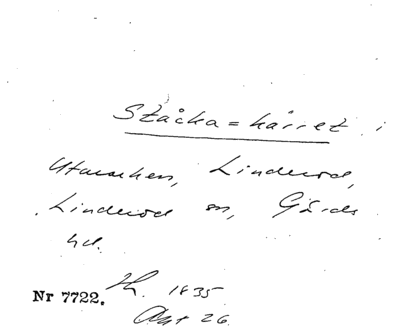 Stacka=kärret i
Utmarken, Linderöd,
Linderöd sn, Gärds
hd.
Nr 7722. 1835
Akt 26